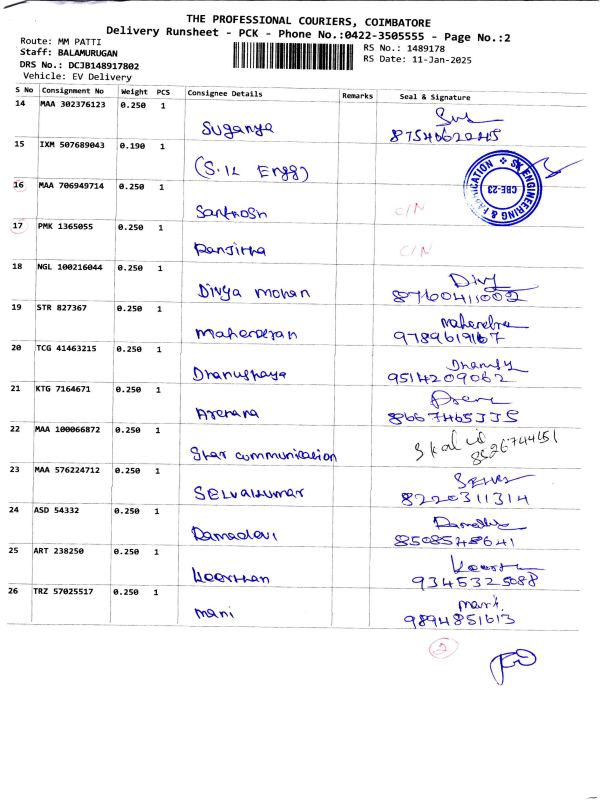 THE PROFESSIONAL COURIERS, COIMBATORE
Delivery Runsheet - PCK - Phone No.:0422-3505555 - Page No.:2
Route: MM PATTI
Staff: BALAMURUGAN
DRS No.: DCJB148917802
Vehicle: EV Delivery
RS No.: 1489178
RS Date: 11-Jan-2025
S No Consignment No Weight PCS Consignee Details Remarks Seal & Signature
14 MAA 302376123 0.250 1
Suganya
15 IXM 507689043 0.190 1
(S.K Engg)
SK ENGINEERING & FABRICATION
CBE-23
16 MAA 706949714 0.250 1
Santhosh C/N
17 PMK 1365055 0.250 1
Ranjitha C/N
18 NGL 100216044 0.250 1
Divya mohan 87600411002
19 STR 827367 0.250 1
Maharajan 9789619167
20 TCG 41463215 0.250 1
Dhanushaya 9514209062
21 KTG 7164671 0.250 1
Archana 8667465335
22 MAA 100066872 0.250 1
Star communication
23 MAA 576224712 0.250 1
Selvakumar 8220311314
24 ASD 54332 0.250 1
Ramadevi 8508548641
25 ART 238250 0.250 1
Keerthan 9345325088
26 TRZ 57025517 0.250 1
mani mani
9894851613
2